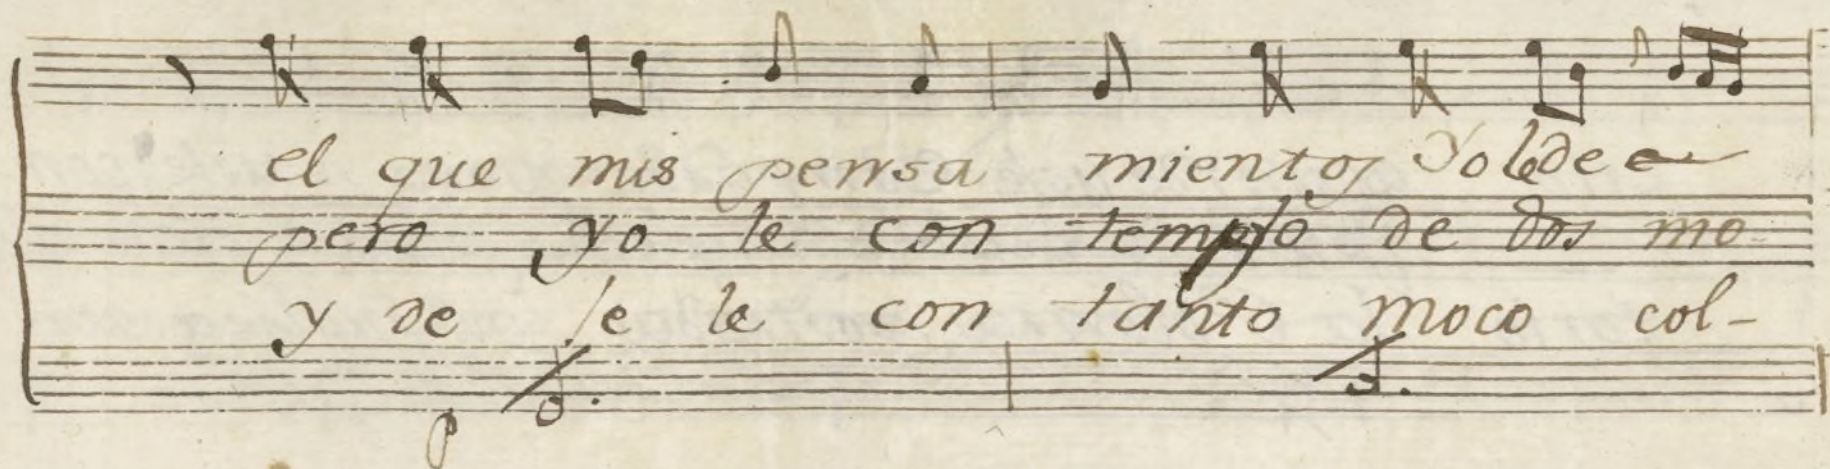 el que mis pensa mientos Yo le de e
pero yo le con templo de dos mo
y de le le con tanto moco col-
p